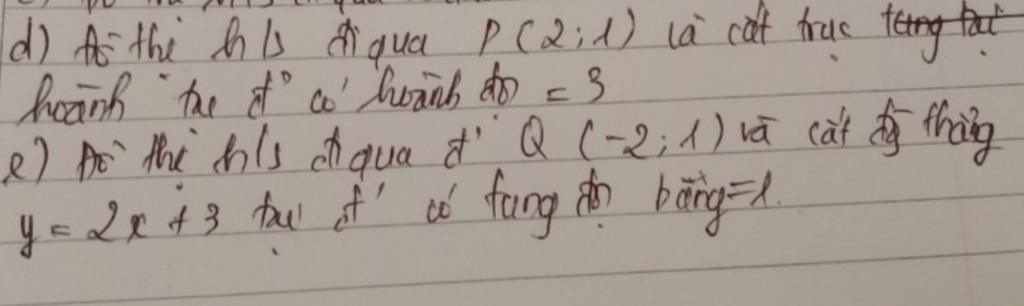 d) Đồ thị h/s đi qua P (2;1) và cắt trục
hoành tại đ' có hoành độ = 3
e) Đồ thị h/s đi qua đ' Q (-2;1) và cắt đg thẳng
y = 2x + 3 tại đ' có tung độ bằng = 1.